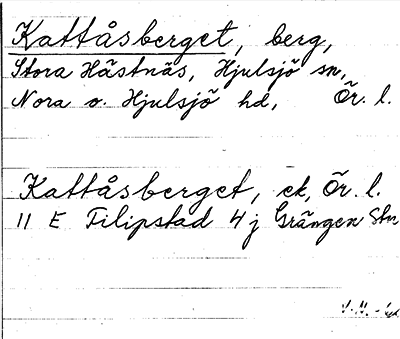 Kattåsberget, berg,
Stora Hästnäs, Hjulsjö sn,
Nora o. Hjulsjö hd, Ör. l.
Kattåsberget, ek, Ör. l.
11 E Filipstad 4 j Grängen Stn